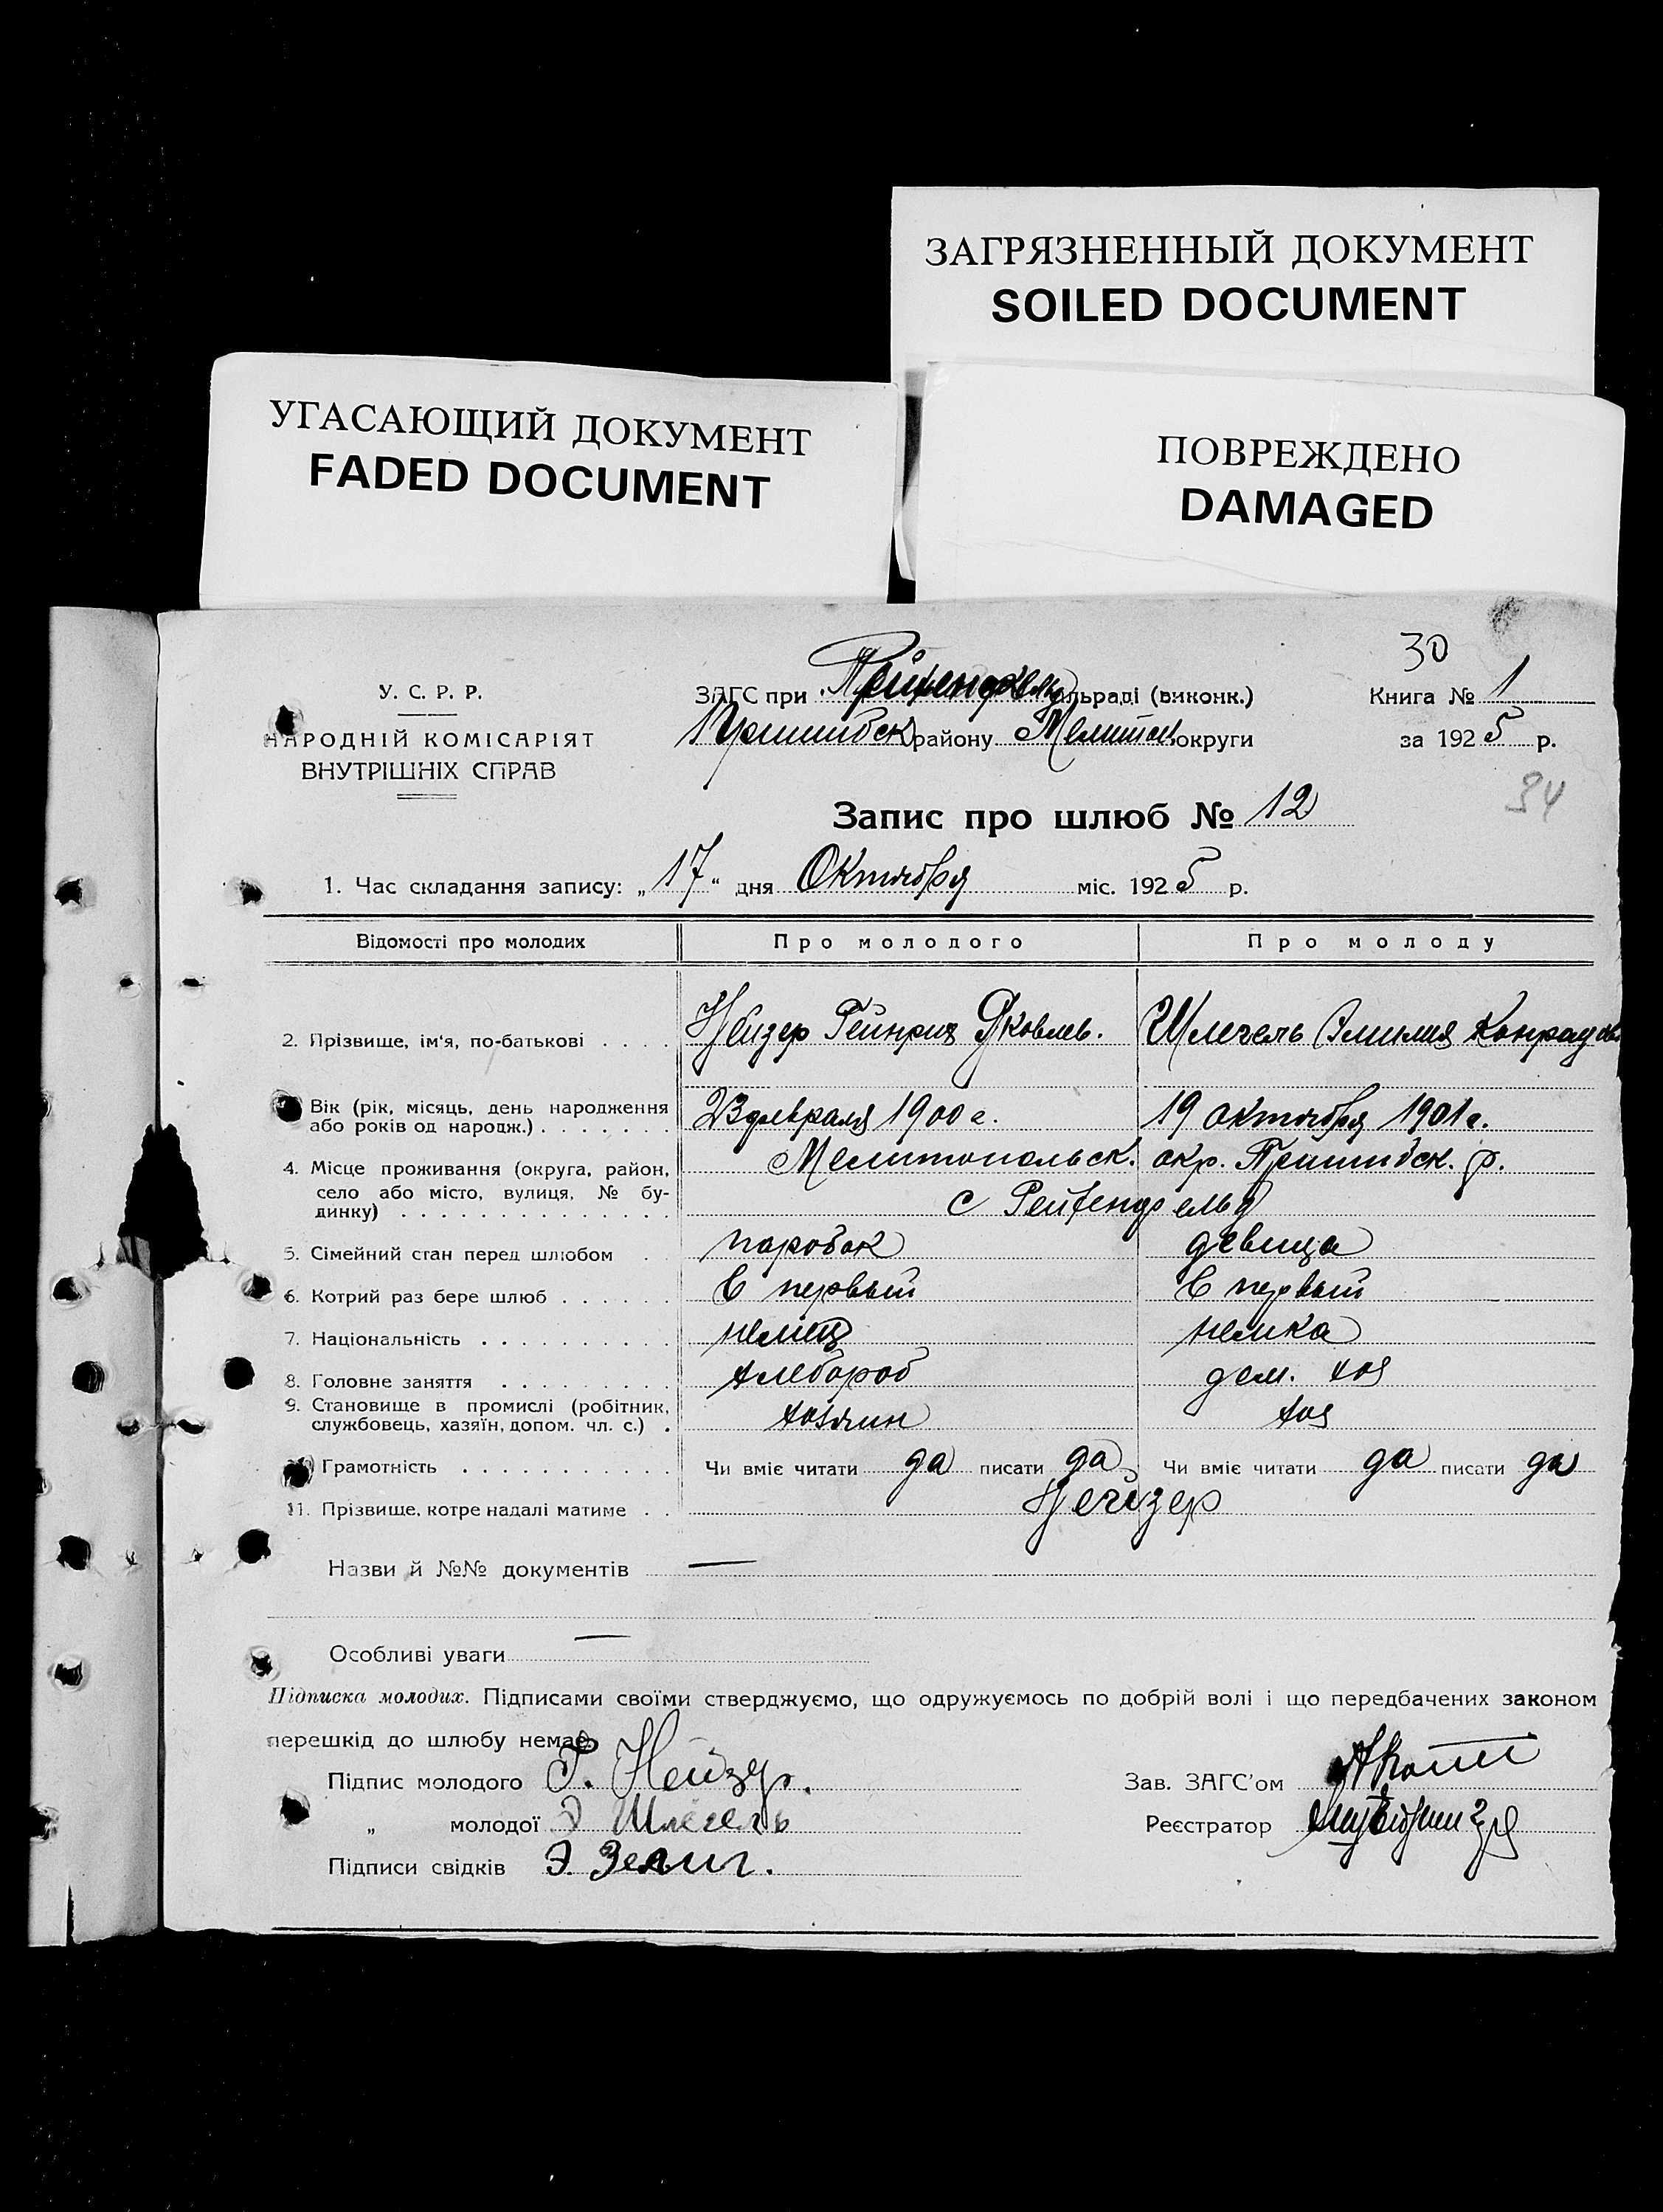 ЗАГРЯЗНЕННЫЙ ДОКУМЕНТ
SOILED DOCUMENT
УГАСАЮЩИЙ ДОКУМЕНТ
FADED DOCUMENT
ПОВРЕЖДЕНО
DAMAGED
30
У. С. Р. Р.
НАРОДНІЙ КОМІСАРІЯТ
ВНУТРІШНІХ СПРАВ
ЗАГС при Рейхенфельд сільраді (виконк.)
Пришибск району Мелитоп округи
Книга № 1
за 1925 р.
34
Запис про шлюб № 12
1. Час складання запису: „17“ дня Октября міс. 1925 р.
Відомості про молодих Про молодого Про молоду
2. Прізвище, ім'я, по-батькові . . . . Нейзер Гейнрих Яковлев. Шлегель Эмилия Конрадов.
Вік (рік, місяць, день народження або років од народж.) . . . . . . . 23 февраля 1900 г. 19 октября 1901 г.
4. Місце проживання (округа, район, Мелитопольск. окр. Пришибск. р.
село або місто, вулиця, № будинку) . . . . . . . . . . . . . с Рейхенфельд
5. Сімейний стан перед шлюбом . . паробок девица
6. Котрий раз бере шлюб . . . . . . В первый В первый
7. Національність . . . . . . . . . немец немка
8. Головне заняття . . . . . . . . . хлебороб дом. хоз
9. Становище в промислі (робітник, службовець, хазяїн, допом. чл. с.) . хозяин хоз
Грамотність . . . . . . . . . . . Чи вміє читати да писати да Чи вміє читати да писати да
11. Прізвище, котре надалі матиме . . Нейзер
Назви й №№ документів —
Особливі уваги —
Підписка молодих. Підписами своїми стверджуємо, що одружуємось по добрій волі і що передбачених законом
перешкід до шлюбу немає.
Підпис молодого Г. Нейзер.
„ молодої Э Шлегель
Підписи свідків Э. Зелиг.
Зав. ЗАГС'ом
Реєстратор